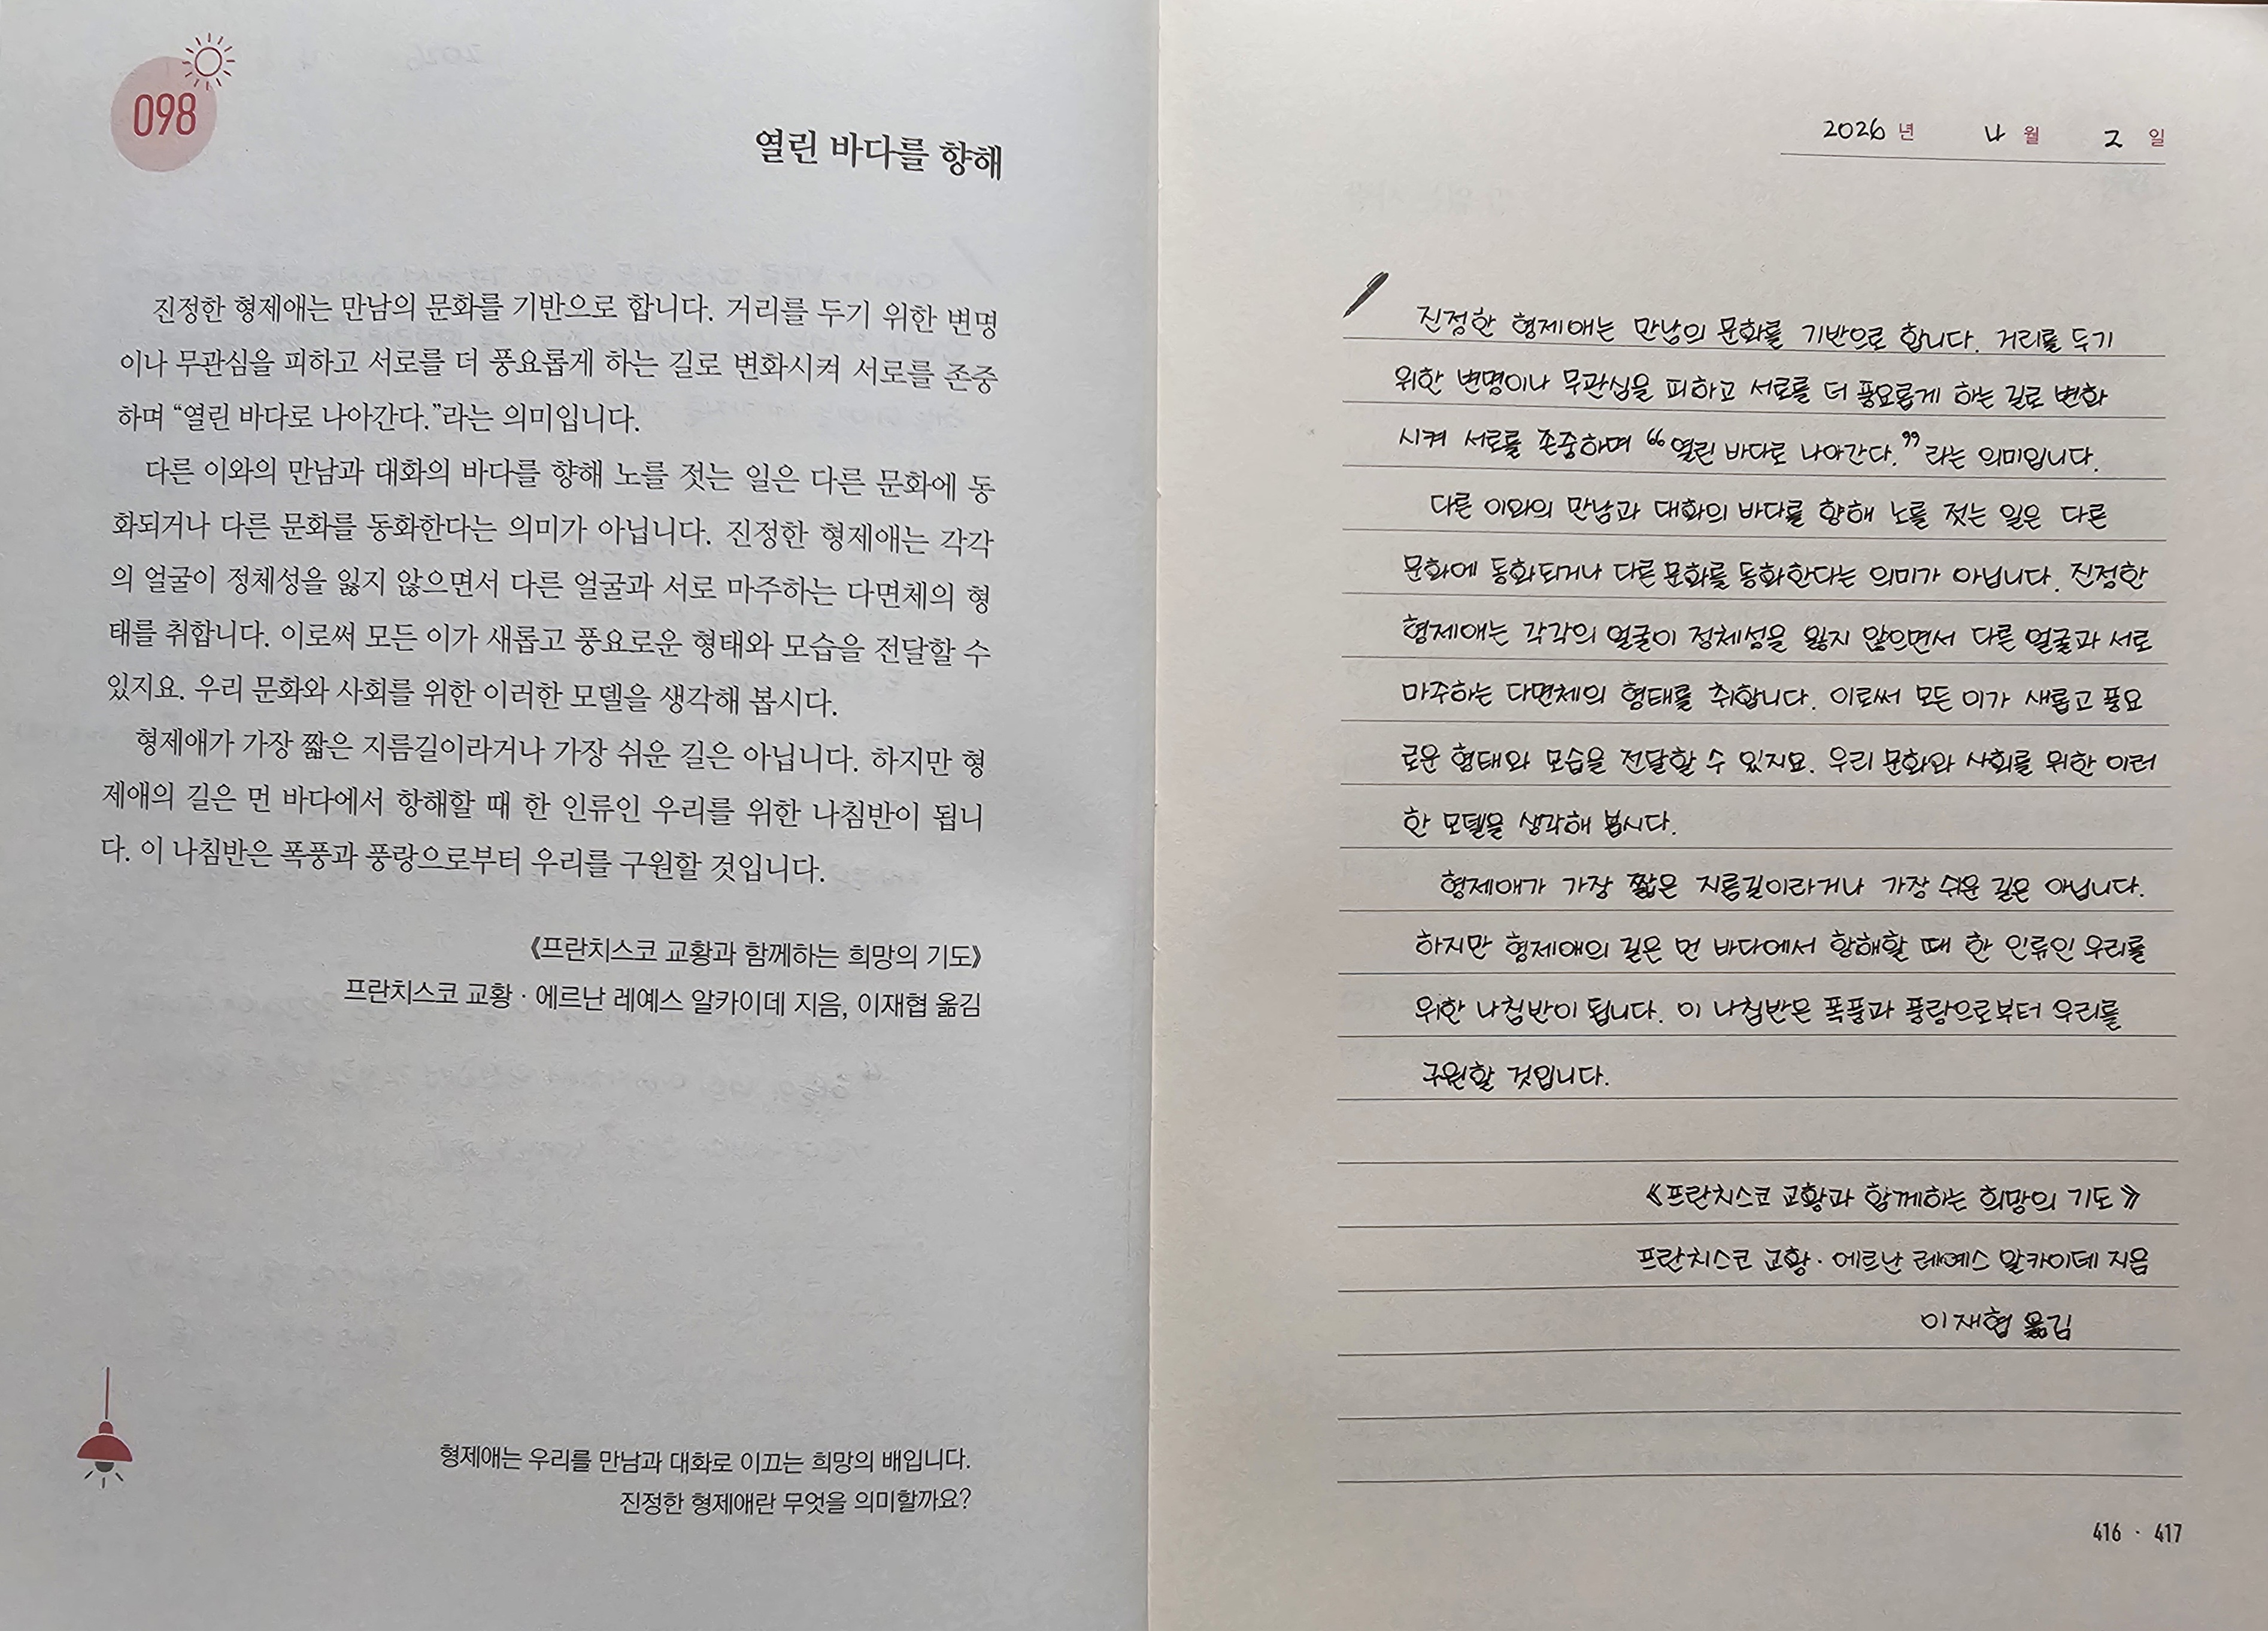 098
열린 바다를 향해
진정한 형제애는 만남의 문화를 기반으로 합니다. 거리를 두기 위한 변명
이나 무관심을 피하고 서로를 더 풍요롭게 하는 길로 변화시켜 서로를 존중
하며 “열린 바다로 나아간다.”라는 의미입니다.
다른 이와의 만남과 대화의 바다를 향해 노를 젓는 일은 다른 문화에 동
화되거나 다른 문화를 동화한다는 의미가 아닙니다. 진정한 형제애는 각각
의 얼굴이 정체성을 잃지 않으면서 다른 얼굴과 서로 마주하는 다면체의 형
태를 취합니다. 이로써 모든 이가 새롭고 풍요로운 형태와 모습을 전달할 수
있지요. 우리 문화와 사회를 위한 이러한 모델을 생각해 봅시다.
형제애가 가장 짧은 지름길이라거나 가장 쉬운 길은 아닙니다. 하지만 형
제애의 길은 먼 바다에서 항해할 때 한 인류인 우리를 위한 나침반이 됩니
다. 이 나침반은 폭풍과 풍랑으로부터 우리를 구원할 것입니다.
《프란치스코 교황과 함께하는 희망의 기도》
프란치스코 교황 · 에르난 레예스 알카이데 지음, 이재협 옮김
형제애는 우리를 만남과 대화로 이끄는 희망의 배입니다.
진정한 형제애란 무엇을 의미할까요?
2026 년 4 월 2 일
진정한 형제애는 만남의 문화를 기반으로 합니다. 거리를 두기
위한 변명이나 무관심을 피하고 서로를 더 풍요롭게 하는 길로 변화
시켜 서로를 존중하며 “열린 바다로 나아간다.”라는 의미입니다.
다른 이와의 만남과 대화의 바다를 향해 노를 젓는 일은 다른
문화에 동화되거나 다른 문화를 동화한다는 의미가 아닙니다. 진정한
형제애는 각각의 얼굴이 정체성을 잃지 않으면서 다른 얼굴과 서로
마주하는 다면체의 형태를 취합니다. 이로써 모든 이가 새롭고 풍요
로운 형태와 모습을 전달할 수 있지요. 우리 문화와 사회를 위한 이러
한 모델을 생각해 봅시다.
형제애가 가장 짧은 지름길이라거나 가장 쉬운 길은 아닙니다.
하지만 형제애의 길은 먼 바다에서 항해할 때 한 인류인 우리를
위한 나침반이 됩니다. 이 나침반은 폭풍과 풍랑으로부터 우리를
구원할 것입니다.
《프란치스코 교황과 함께하는 희망의 기도》
프란치스코 교황 · 에르난 레예스 알카이데 지음
이재협 옮김
416 · 417